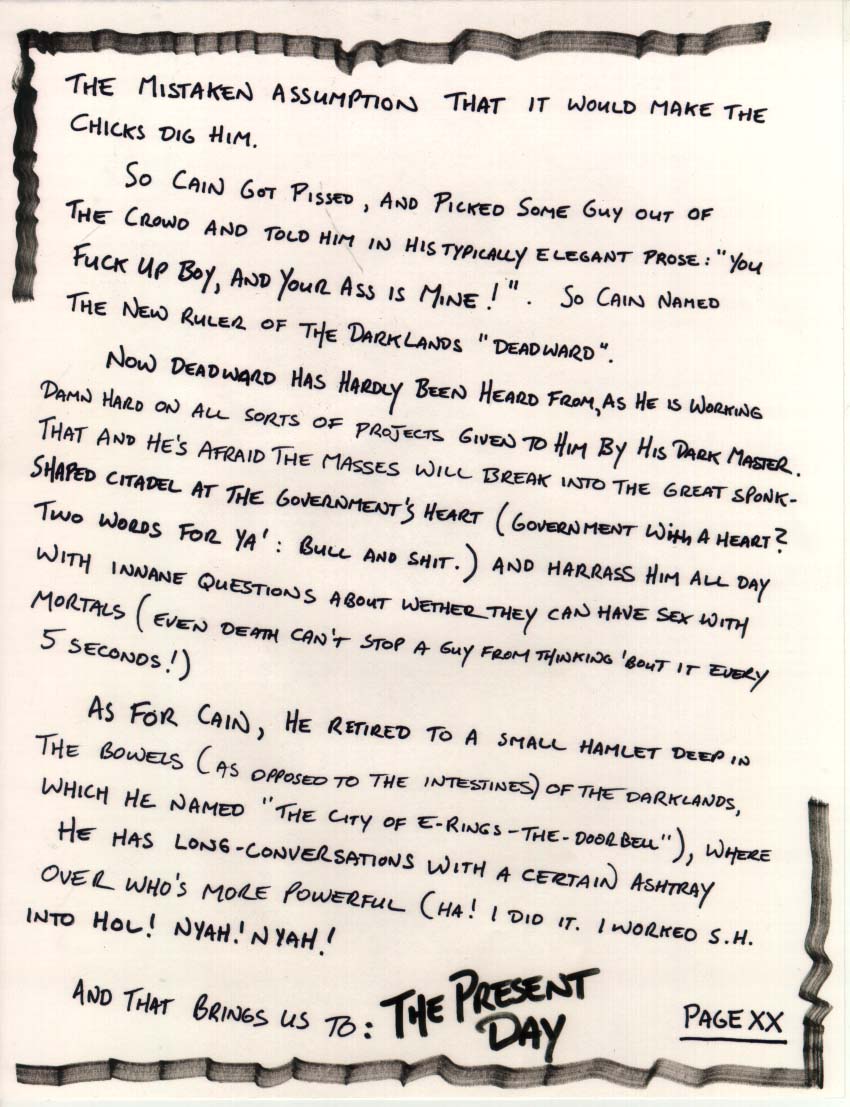 THE MISTAKEN ASSUMPTION THAT IT WOULD MAKE THE
CHICKS DIG HIM.
SO CAIN GOT PISSED, AND PICKED SOME GUY OUT OF
THE CROWD AND TOLD HIM IN HIS TYPICALLY ELEGANT PROSE: "YOU
FUCK UP BOY, AND YOUR ASS IS MINE!". SO CAIN NAMED
THE NEW RULER OF THE DARKLANDS "DEADWARD".
NOW DEADWARD HAS HARDLY BEEN HEARD FROM, AS HE IS WORKING
DAMN HARD ON ALL SORTS OF PROJECTS GIVEN TO HIM BY HIS DARK MASTER.
THAT AND HE'S AFRAID THE MASSES WILL BREAK INTO THE GREAT SPONK-
SHAPED CITADEL AT THE GOVERNMENT'S HEART (GOVERNMENT WITH A HEART?
TWO WORDS FOR YA': BULL AND SHIT.) AND HARRASS HIM ALL DAY
WITH INNANE QUESTIONS ABOUT WETHER THEY CAN HAVE SEX WITH
MORTALS (EVEN DEATH CAN'T STOP A GUY FROM THINKING 'BOUT IT EVERY
5 SECONDS!)
AS FOR CAIN, HE RETIRED TO A SMALL HAMLET DEEP IN
THE BOWELS (AS OPPOSED TO THE INTESTINES) OF THE DARKLANDS,
WHICH HE NAMED "THE CITY OF E-RINGS-THE-DOORBELL"), WHERE
HE HAS LONG-CONVERSATIONS WITH A CERTAIN ASHTRAY
OVER WHO'S MORE POWERFUL (HA! I DID IT. I WORKED S.H.
INTO HOL! NYAH! NYAH!
AND THAT BRINGS US TO: THE PRESENT
DAY
PAGE XX